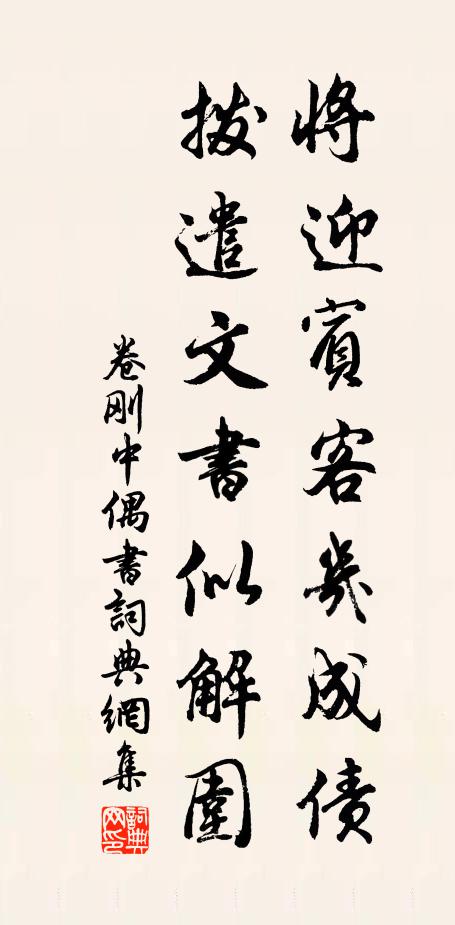 將迎賓客幾成債
撥遣文書似解圍
卷剛中偶書詞典網集
詞典網印